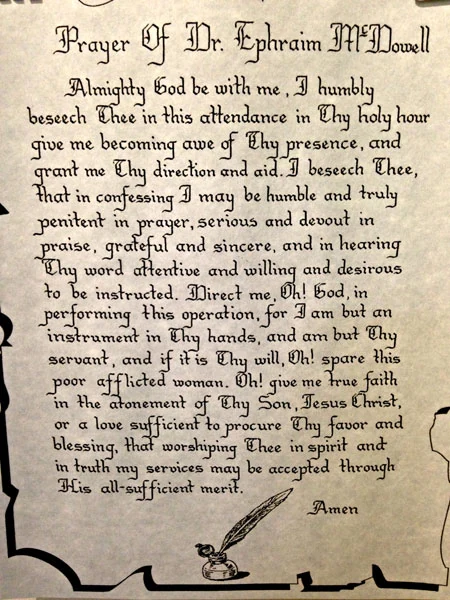 Prayer Of Dr. Ephraim McDowell
Almighty God be with me, I humbly
beseech Thee in this attendance in Thy holy hour
give me becoming awe of Thy presence, and
grant me Thy direction and aid. I beseech Thee,
that in confessing I may be humble and truly
penitent in prayer, serious and devout in
praise, grateful and sincere, and in hearing
Thy word attentive and willing and desirous
to be instructed. Direct me, Oh! God, in
performing this operation, for I am but an
instrument in Thy hands, and am but Thy
servant, and if it is Thy will, Oh! spare this
poor afflicted woman. Oh! give me true faith
in the atonement of Thy Son, Jesus Christ,
or a love sufficient to procure Thy favor and
blessing, that worshiping Thee in spirit and
in truth my services may be accepted through
His all-sufficient merit.
Amen